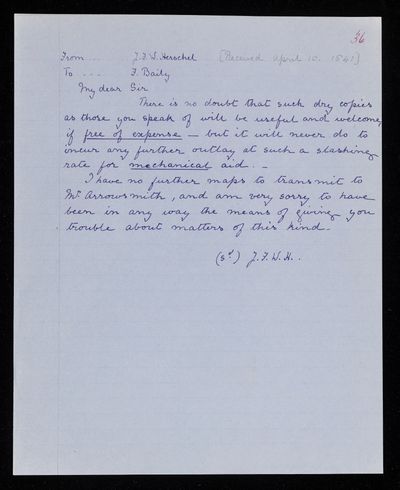 36
From ... J.F.W. Herschel [Received April 10. 1841]
To ... F. Baily
My dear Sir
There is no doubt that such dry copies
as those you speak of will be useful and welcome,
if free of expense — but it will never do to
incur any further outlay at such a slashing
rate for mechanical aid. -
I have no further maps to transmit to
Mr Arrowsmith, and am very sorry to have
been in any way the means of giving you
trouble about matters of this kind.
(sd) J.F.W.H..